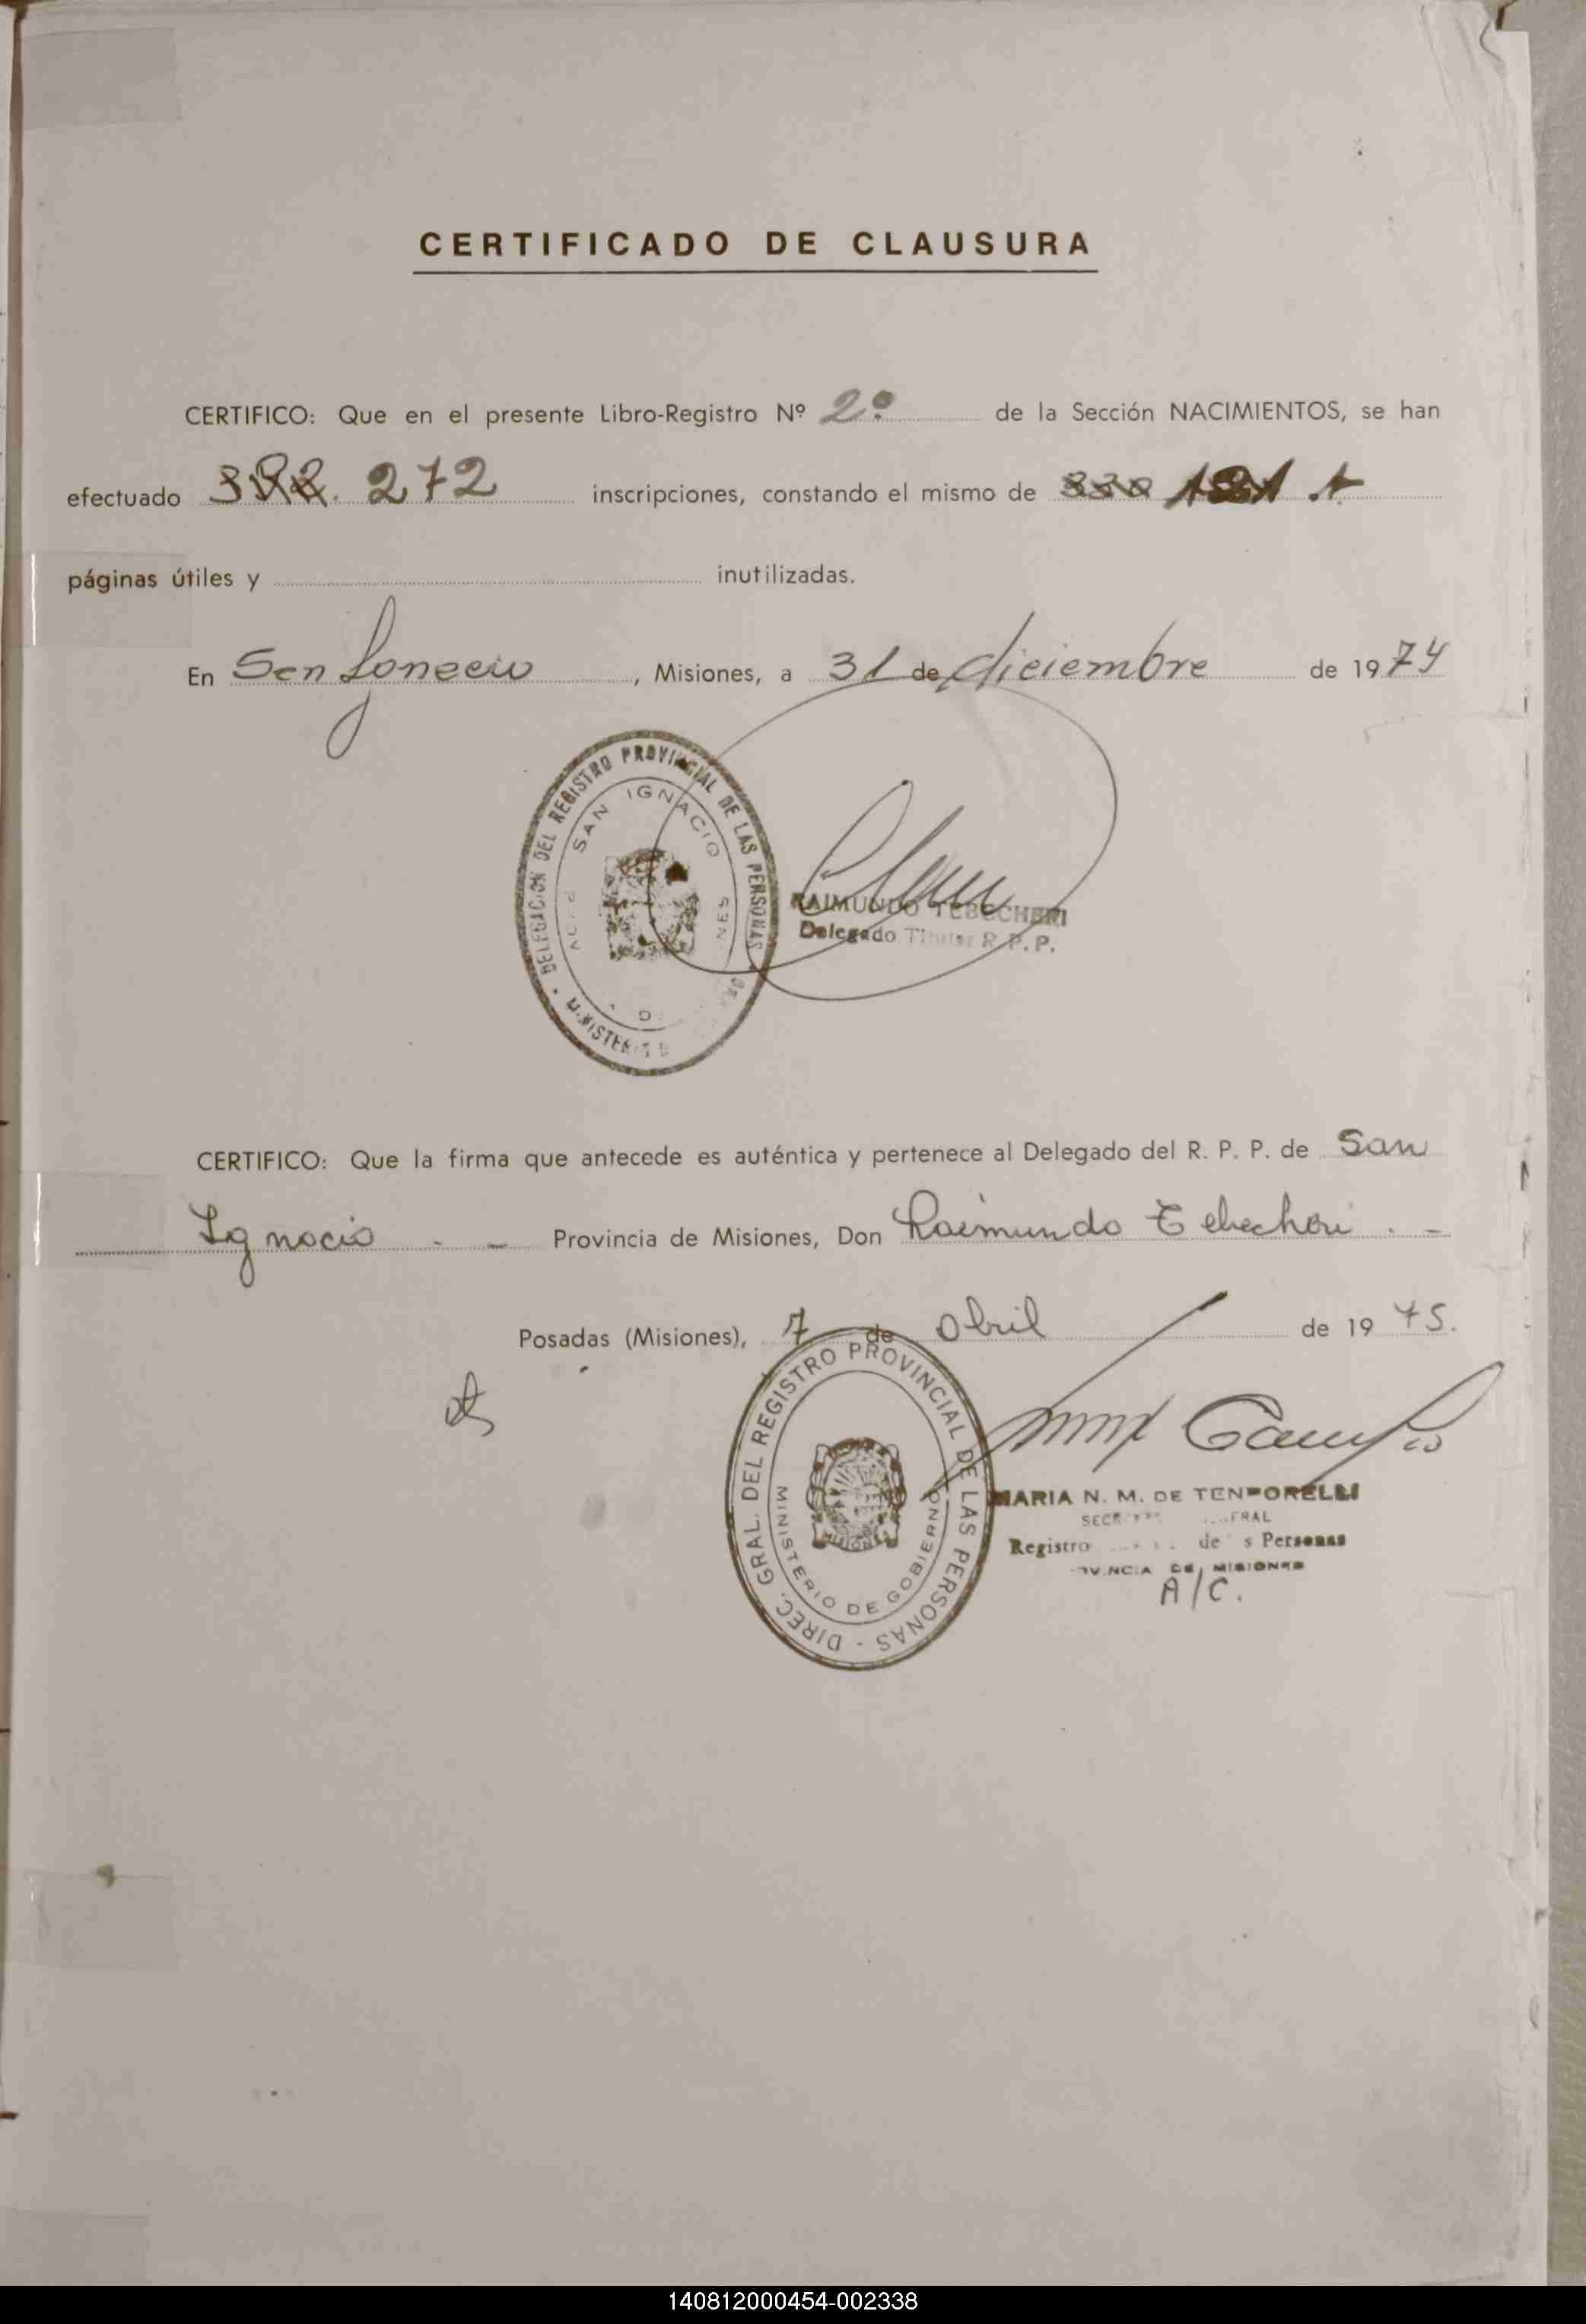 CERTIFICADO DE CLAUSURA
CERTIFICO: Que en el presente Libro-Registro Nº 2º de la Sección NACIMIENTOS, se han
efectuado 272 inscripciones, constando el mismo de
páginas útiles y inutilizadas.
En San Ignacio, Misiones, a 31 de diciembre de 1974
DELEGACION DEL REGISTRO PROVINCIAL DE LAS PERSONAS
SAN IGNACIO
RAIMUNDO TEBECHERI
Delegado Titular R. P. P.
CERTIFICO: Que la firma que antecede es auténtica y pertenece al Delegado del R. P. P. de San
Ignacio - - Provincia de Misiones, Don Raimundo Tebecheri . -
Posadas (Misiones), 7 de abril de 1975.
DIREC. GRAL. DEL REGISTRO PROVINCIAL DE LAS PERSONAS -
MINISTERIO DE GOBIERNO
MISIONES
MARIA N. M. DE TEMPORELLI
Registro de Personas
DE MISIONES
A/C.
140812000454-002338